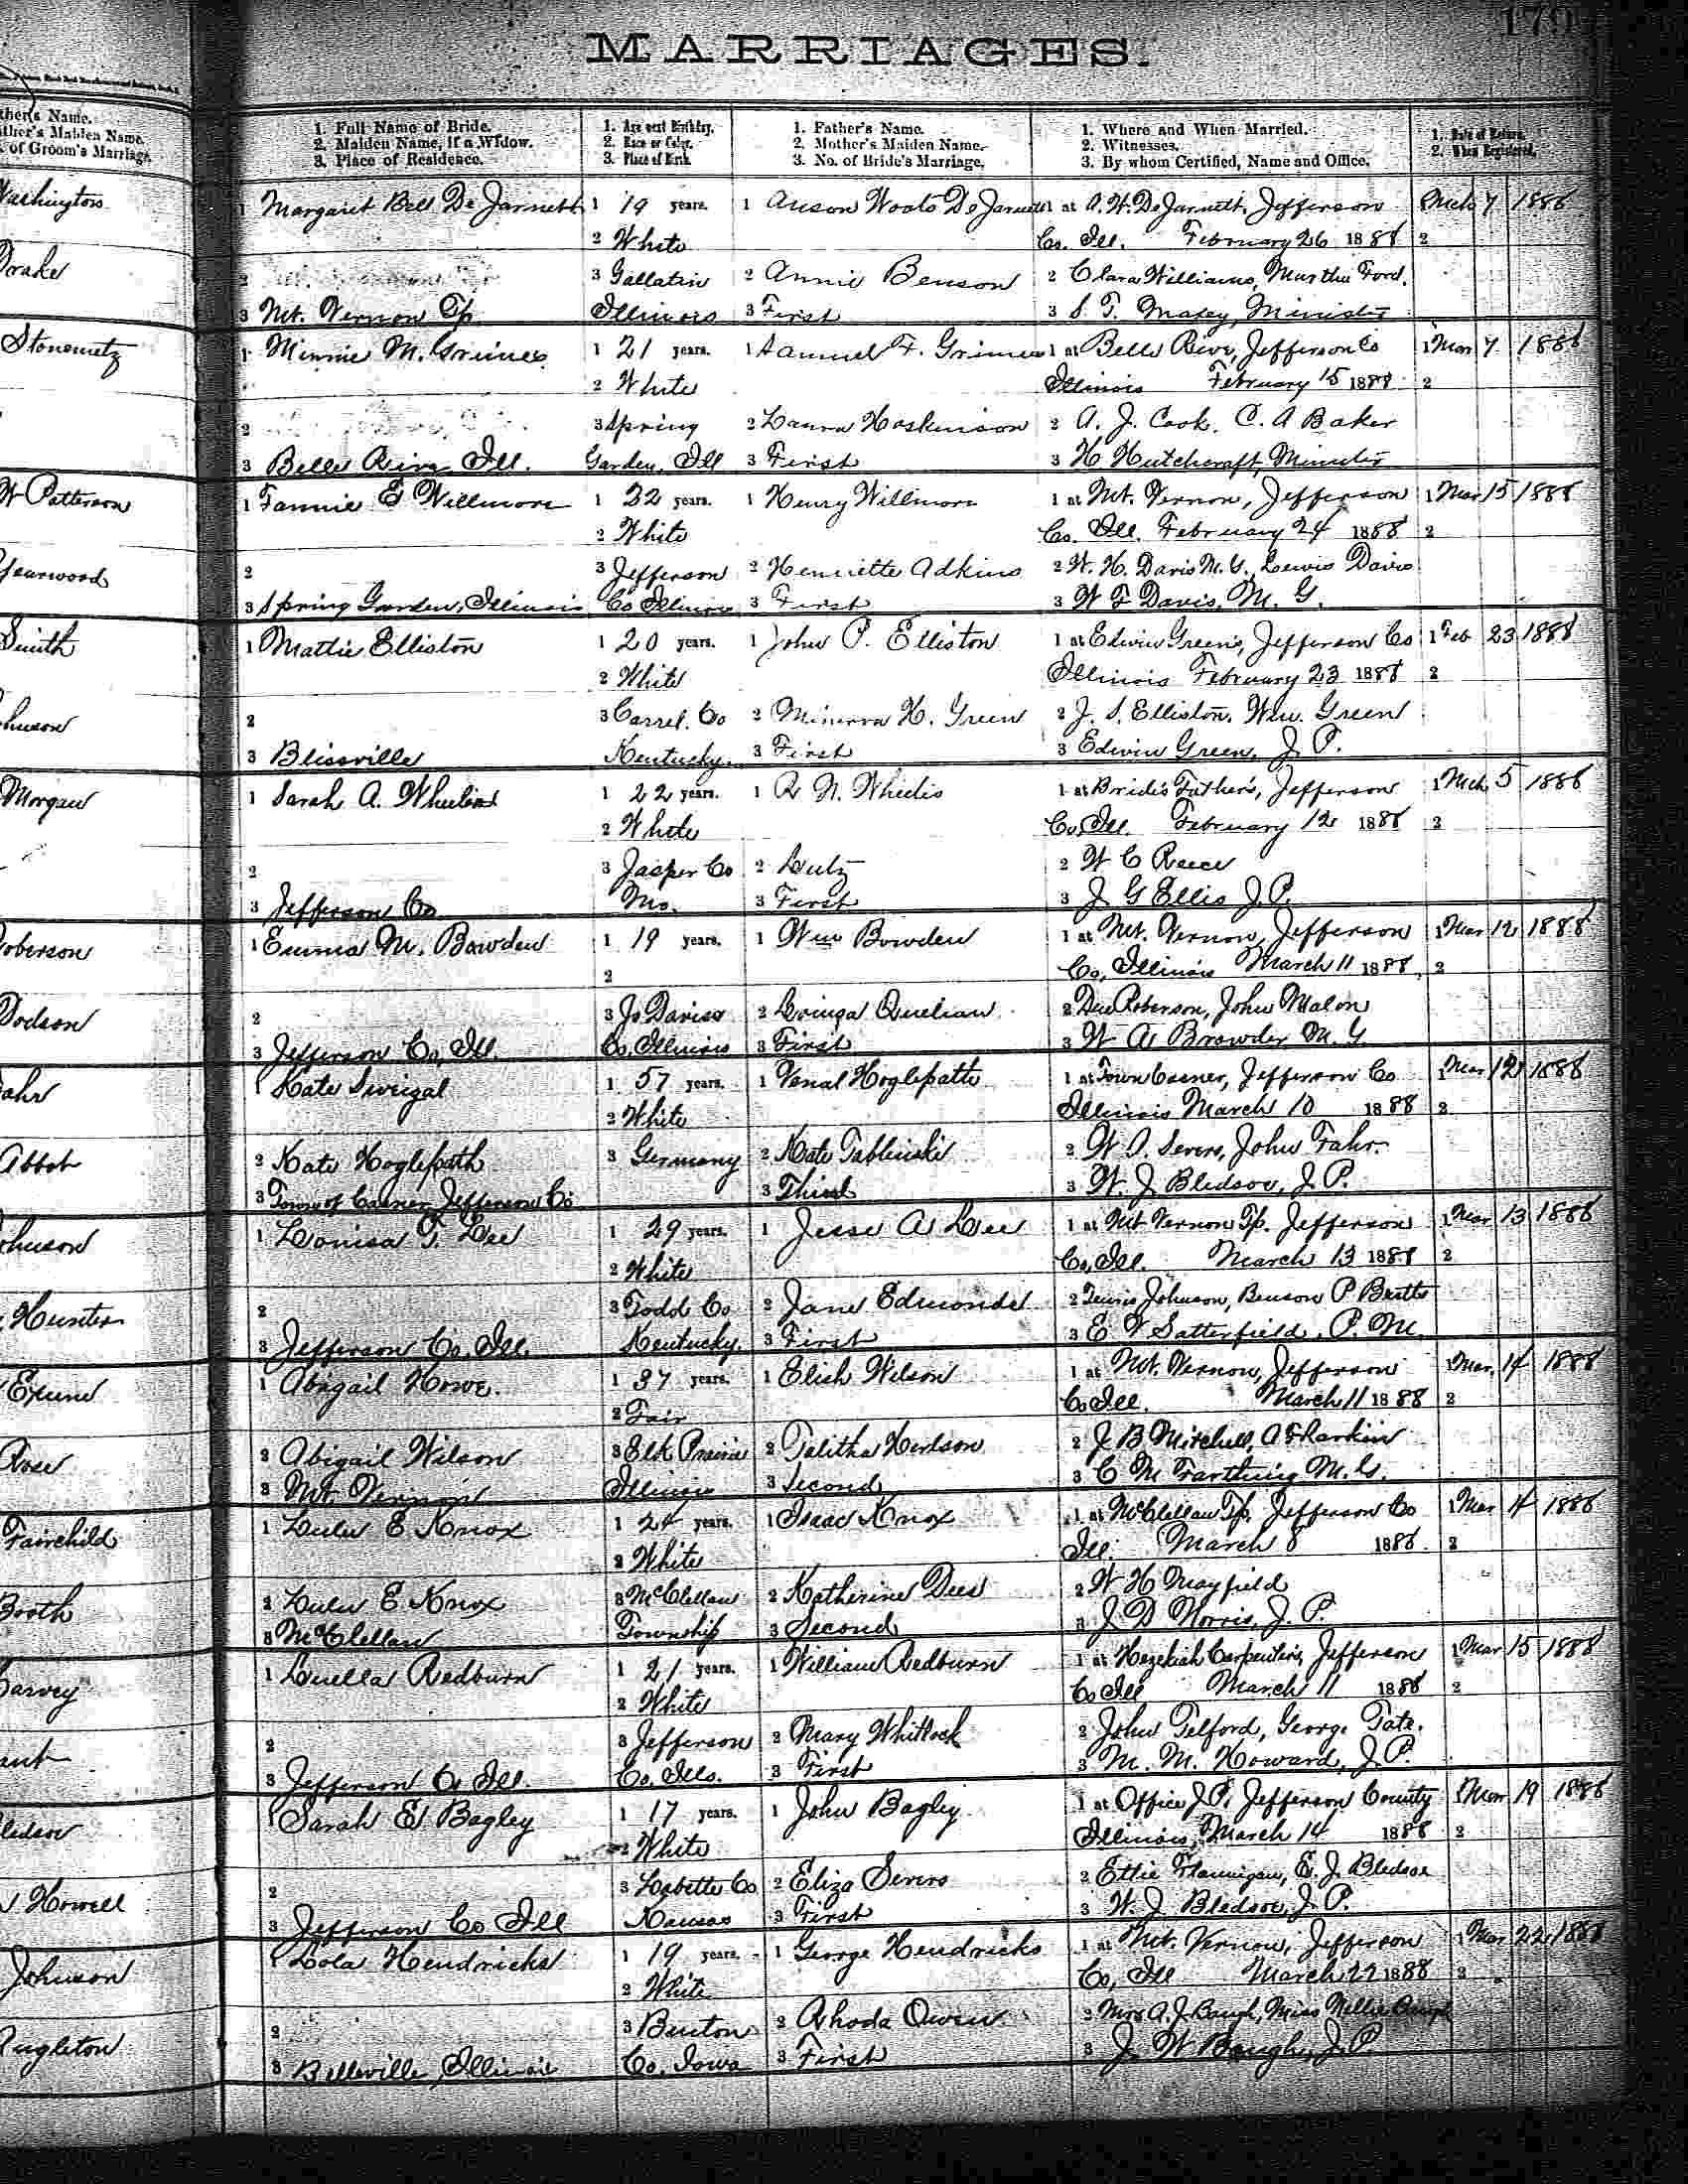 179
MARRIAGES.
ther's Name.
ther's Maiden Name.
of Groom's Marriage.
1. Full Name of Bride.
2. Maiden Name, if a Widow.
3. Place of Residence.
1. Age next Birthday.
2. Race or Color.
3. Place of Birth.
1. Father's Name.
2. Mother's Maiden Name.
3. No. of Bride's Marriage.
1. Where and When Married.
2. Witnesses.
3. By whom Certified, Name and Office.
1. Date of Return.
2. When Registered.
Washington
Drake
1 Margaret Bell De Jarnett 1 19 years. 1 Anson Woots De Jarnett 1 at A. W. De Jarnett, Jefferson Mch 7 1888
2 White Co. Ill. February 26 1888 2
2 3 Gallatin 2 Annie Benson 2 Clara Williams, Martha Ford.
3 Mt. Vernon Tp. Illinois 3 First 3 S. T. Maxey, Minister
Stonemetz
1 Minnie M. Grimes 1 21 years. 1 Samuel F. Grimes 1 at Belle Rive, Jefferson Co 1 Mar 7 1888
2 White Illinois February 15 1888 2
2 3 Spring 2 Laura Hoskinson 2 A. J. Cook, C. A Baker
3 Belle Rive, Ill. Garden, Ill 3 First 3 H Hutchcraft, Minister
W Patterson
Yearwood
1 Fannie E Willmore 1 22 years. 1 Henry Willmore 1 at Mt. Vernon, Jefferson 1 Mar 15 1888
2 White Co. Ill. February 24 1888 2
2 3 Jefferson 2 Henriette Adkins 2 W. H. Davis M. G., Lewis Davis
3 Spring Garden, Illinois Co Illinois 3 First 3 W F Davis, M. G.
Smith
Johnson
1 Mattie Elliston 1 20 years. 1 John P. Elliston 1 at Edwin Green's, Jefferson Co 1 Feb 23 1888
2 White Illinois February 23 1888 2
2 3 Carrel. Co 2 Minerva H. Green 2 J. S. Elliston, Wm. Green
3 Blissville Kentucky. 3 First 3 Edwin Green, J. P.
Morgan
1 Sarah A. 1 22 years. 1 R N. Wheelis 1 at Bride's Father's, Jefferson 1 Mch 5 1888
2 White Co. Ill. February 12 1888 2
2 3 Jasper Co 2 Lutz 2 W C Reece
3 Jefferson Co Mo. 3 First 3 J G Ellis J. P.
Roberson
Dodson
1 Emma M. Bowden 1 19 years. 1 Wm Bowden 1 at Mt. Vernon, Jefferson 1 Mar 12 1888
2 Co, Illinois March 11 1888 2
2 3 Jo Daviess 2 2 Dee Roberson, John Malon
3 Jefferson Co, Ill. Co. Illinois 3 First 3 W A Browder M. G
Fahr
Abbot
1 Kate Sweigal 1 57 years. 1 Venal Hoglepath 1 at Town Casner, Jefferson Co 1 Mar 12 1888
2 White Illinois March 10 1888 2
2 Kate Hoglepath 3 Germany 2 Kate Tablinski 2 W. S. Severs, John Fahr.
3 Town of Casner, Jefferson Co 3 Third 3 W. J Bledsoe, J. P.
Johnson
Hunter
1 Louisa T. Lee 1 29 years. 1 Jesse A Lee 1 at Mt Vernon Tp. Jefferson 1 Mar 13 1888
2 White Co, Ill. March 13 1888 2
2 3 Todd Co 2 Jane Edmonds 2 Lewis Johnson, Benson P
3 Jefferson Co, Ill. Kentucky. 3 First 3 E V Satterfield, P. M.
Exum
Rose
1 Abigail Howe. 1 37 years. 1 Elish Wilson 1 at Mt. Vernon, Jefferson 1 Mar. 14 1888
2 Fair Co Ill. March 11 1888 2
2 Abigail Wilson 3 Elk Prairie 2 Talitha Hudson 2 J B Mitchell, A F Rankin
3 Mt. Vernon Illinois 3 Second 3 C M Farthing M. G.
Fairchild
Booth
1 Lulu E Knox 1 24 years. 1 Isaac Knox 1 at McClellan Tp. Jefferson Co 1 Mar 14 1888
2 White Ill. March 8 1888 2
2 Lulu E Knox 3 McClellan 2 Katherine Dees 2 W H Mayfield
3 McClellan Township 3 Second 3 J. D Norris, J. P.
Garvey
1 Luella Redburn 1 21 years. 1 William Redburn 1 at Hezekiah Carpenter's, Jefferson 1 Mar 15 1888
2 White Co Ill March 11 1888 2
2 3 Jefferson 2 Mary Whitlock 2 John Telford, George Tate.
3 Jefferson Co Ill. Co. Ills. 3 First 3 M. M. Howard, J. P.
Bledsoe
Howell
1 Sarah E Bagley 1 17 years. 1 John Bagley 1 at Office J. P. Jefferson County 1 Mar 19 1888
2 White Illinois, March 14 1888 2
2 3 Labette Co 2 Eliza Severs 2 Ettie Flannigan, E. J. Bledsoe
3 Jefferson Co Ill Kansas 3 First 3 W. J. Bledsoe, J. P.
Johnson
1 Lola Hendricks 1 19 years. 1 George Hendricks 1 at Mt. Vernon, Jefferson 1 Mar 22 1888
2 White Co, Ill March 22 1888 2
2 3 Benton 2 Rhoda Owen 2 Mrs A. J. Baugh, Miss Nellie Baugh
3 Belleville, Illinois Co. Iowa 3 First 3 J. W Baugh, J. P